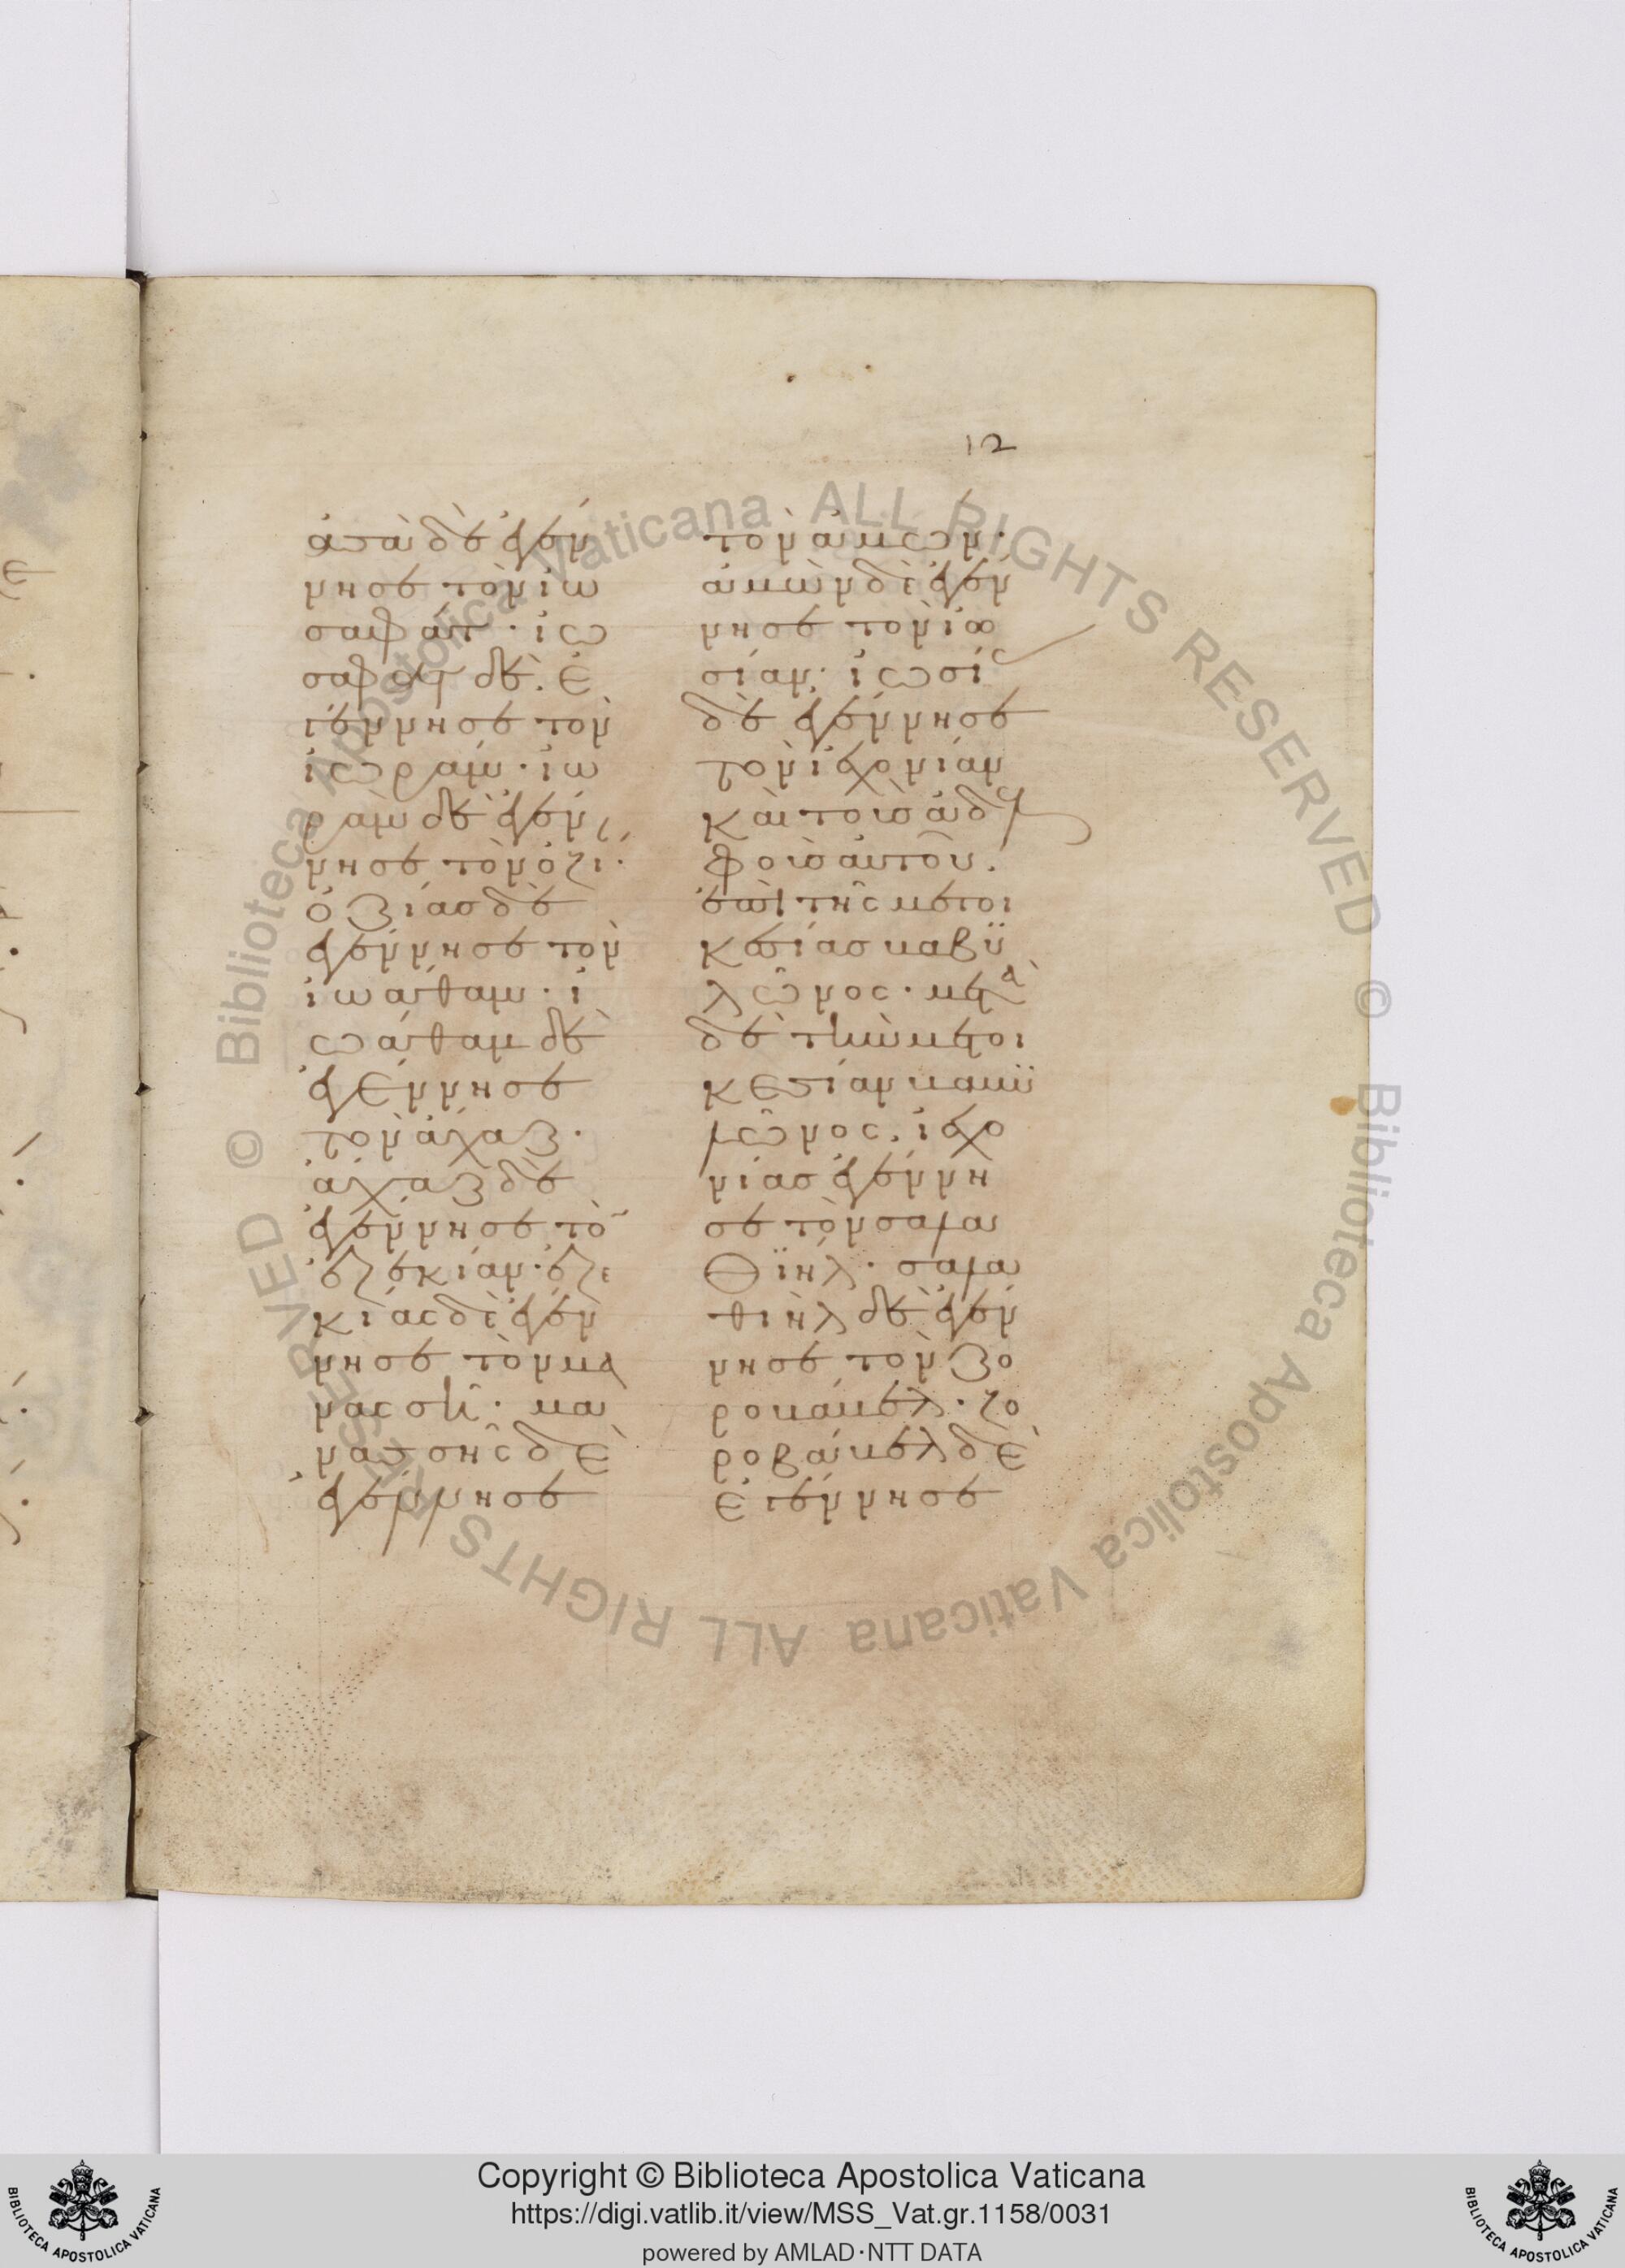 12
ἀσὰ δὲ ἐγέν
νησε τὸν ἰω
σαφάτ · ἰω
σαφὰτ δὲ · ἐ
γέννησε τὸν
ἰωράμ · ἰω
ρὰμ δὲ ἐγέν
νησε τὸν ὀζί ·
ὀζίας δὲ
ἐγέννησε τὸν
ἰωάθαμ · ἰ
ωάθαμ δὲ
ἐγέννησε
τὸν ἄχαζ ·
ἄχαζ δὲ
ἐγέννησε τὸ
ἐζεκίαν · ἐζε
κίας δὲ ἐγέν
νησε τὸν μα
νασσῆ · μα
νασσῆς δὲ
ἐγέννησε
τὸν ἀμών ·
ἀμὼν δὲ ἐγέν
νησε τὸν ἰω
σίαν · ἰωσί
δὲ ἐγέννησε
τὸν ἰεχονίαν
καὶ τοὺς ἀδελ
φοὺς αὐτοῦ ·
ἐπὶ τῆς μετοι
κεσίας βαβυ
λῶνος · μετὰ
δὲ τὴν μετοι
κεσίαν βαβυ
λῶνος · ἰεχο
νίας ἐγέννη
σε τὸν σαλα
θιήλ · σαλα
θιὴλ δὲ ἐγέν
νησε τὸν ζο
ροβάβελ · ζο
ροβάβελ δὲ
ἐγέννησε
Copyright © Biblioteca Apostolica Vaticana
https://digi.vatlib.it/view/MSS_Vat.gr.1158/0031
powered by AMLAD·NTT DATA
BIBLIOTECA APOSTOLICA VATICANA
BIBLIOTECA APOSTOLICA VATICANA
© Biblioteca Apostolica Vaticana ALL RIGHTS RESERVED
© Biblioteca Apostolica Vaticana ALL RIGHTS RESERVED